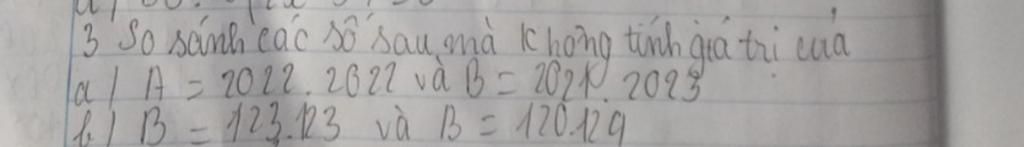 3 So sánh các số sau mà không tính giá trị của
a/ A = 2022.2022 và B = 2021.2023
b/ B = 123.123 và B = 120.129